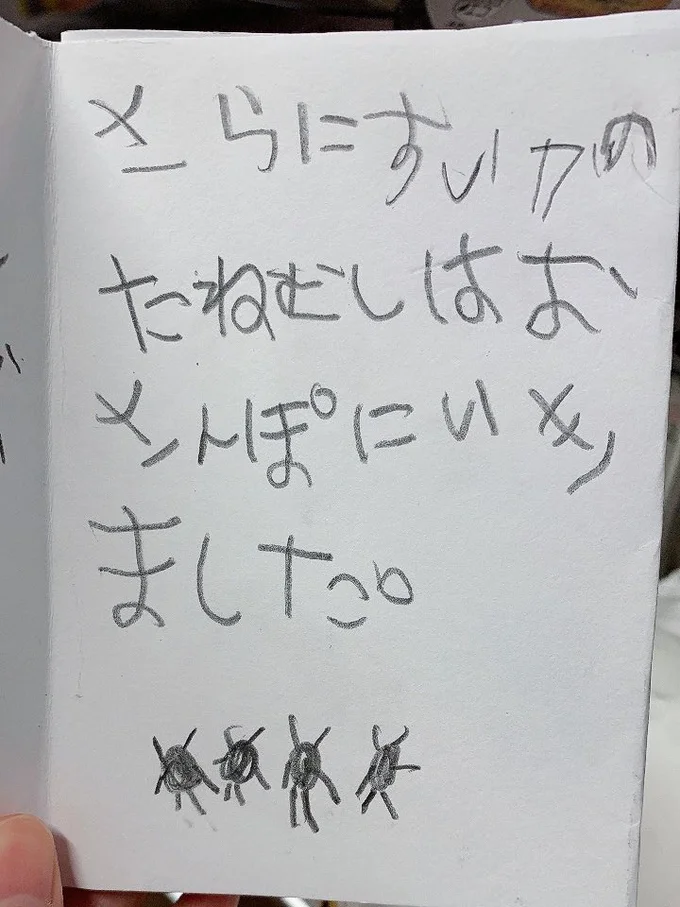 さらにすいかの
たねむしはお
さんぽにいき
ました。